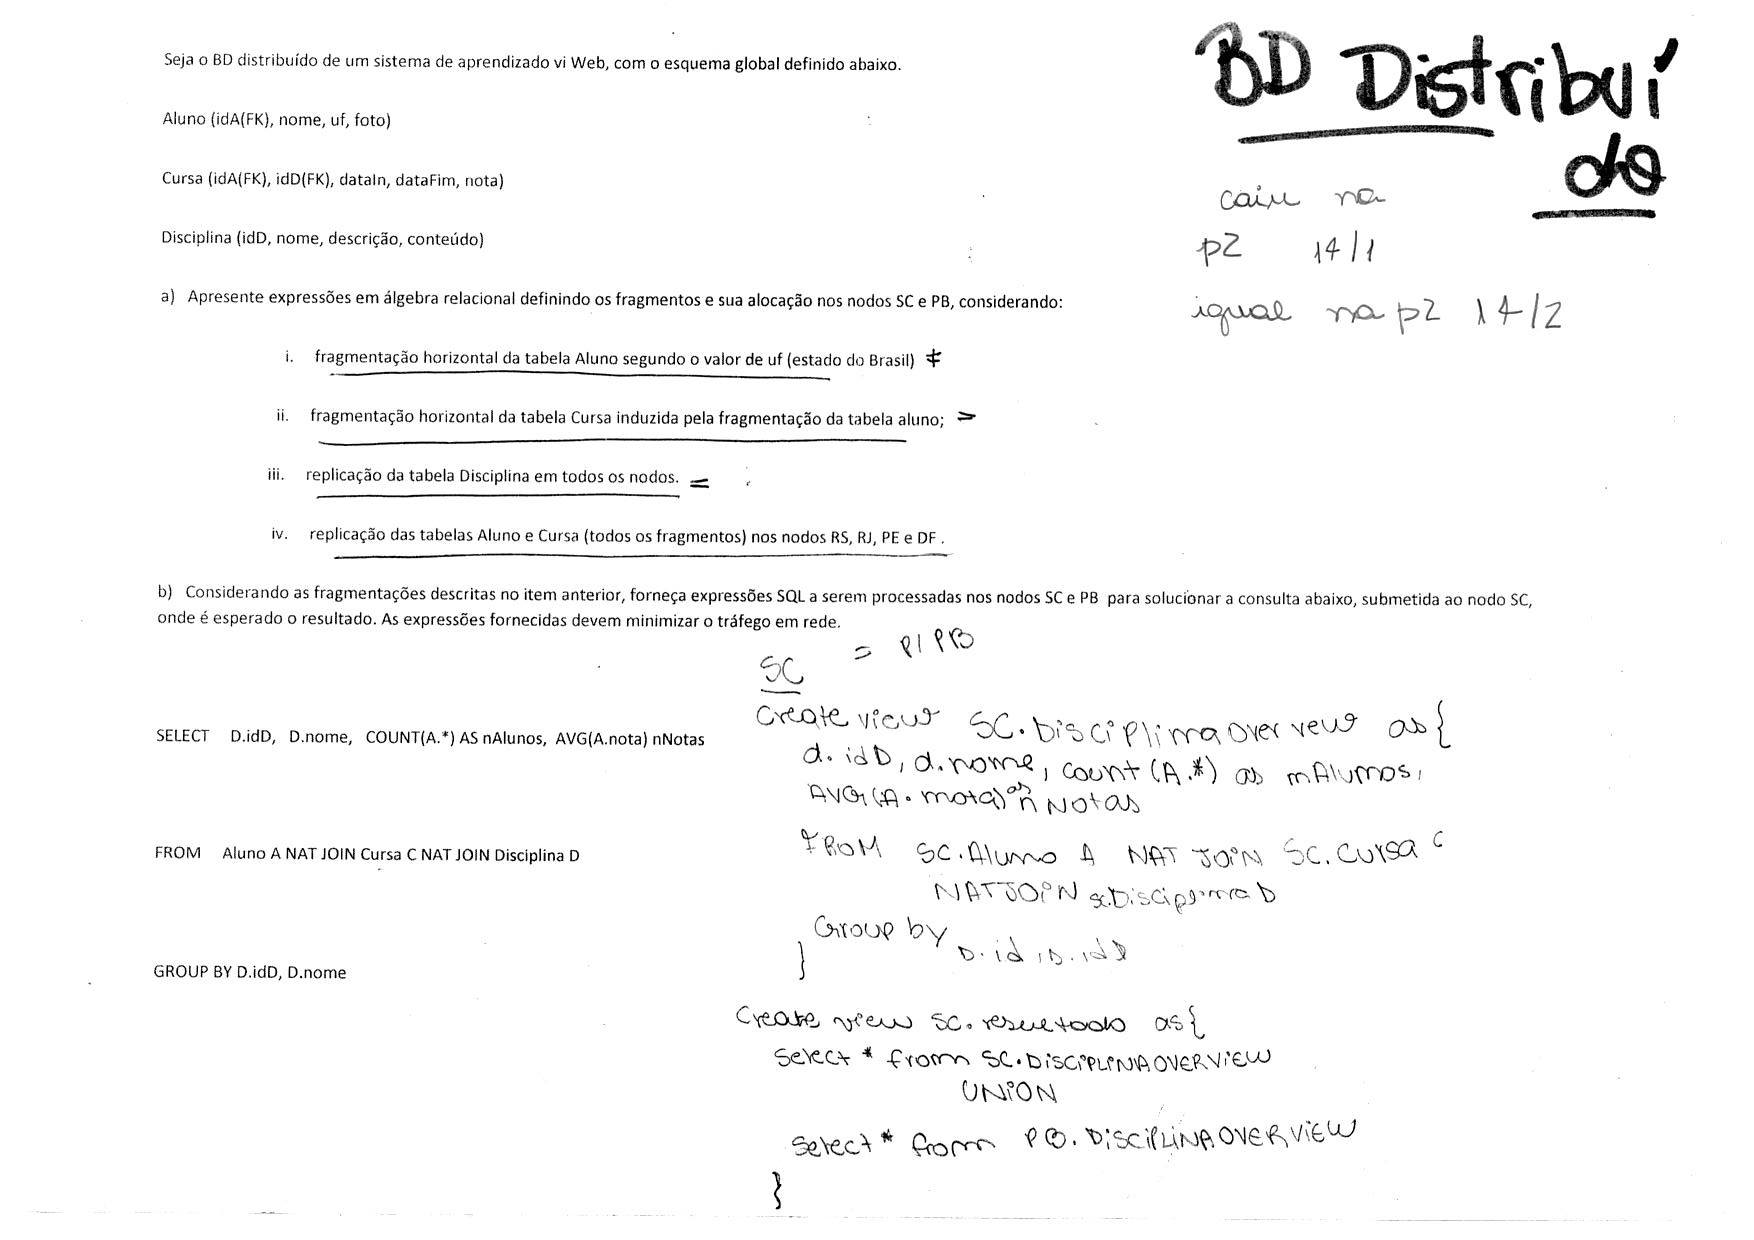 BD Distribuí
do
Seja o BD distribuído de um sistema de aprendizado vi Web, com o esquema global definido abaixo.
Aluno (idA(FK), nome, uf, foto)
Cursa (idA(FK), idD(FK), dataIn, dataFim, nota)
Disciplina (idD, nome, descrição, conteúdo)
caiu na
p2 14/1
igual na p2 14/2
a) Apresente expressões em álgebra relacional definindo os fragmentos e sua alocação nos nodos SC e PB, considerando:
i. fragmentação horizontal da tabela Aluno segundo o valor de uf (estado do Brasil)
ii. fragmentação horizontal da tabela Cursa induzida pela fragmentação da tabela aluno;
iii. replicação da tabela Disciplina em todos os nodos.
iv. replicação das tabelas Aluno e Cursa (todos os fragmentos) nos nodos RS, RJ, PE e DF .
b) Considerando as fragmentações descritas no item anterior, forneça expressões SQL a serem processadas nos nodos SC e PB para solucionar a consulta abaixo, submetida ao nodo SC,
onde é esperado o resultado. As expressões fornecidas devem minimizar o tráfego em rede.
SELECT D.idD, D.nome, COUNT(A.*) AS nAlunos, AVG(A.nota) nNotas
FROM Aluno A NAT JOIN Cursa C NAT JOIN Disciplina D
GROUP BY D.idD, D.nome
SC = p/ PB
Create view SC.Disciplina over veu as {
d.idD, d.nome, count(A.*) as nAlunos,
AVG(A.nota) as n Notas
FROM SC.Aluno A NAT JOIN SC.Cursa C
NAT JOIN sc.Disciplina D
Group by D.id, D.idD
}
Create view SC.resultado as {
Select * from SC.DISCIPLINAOVERVIEW
UNION
Select * from PB.DISCIPLINAOVERVIEW
}